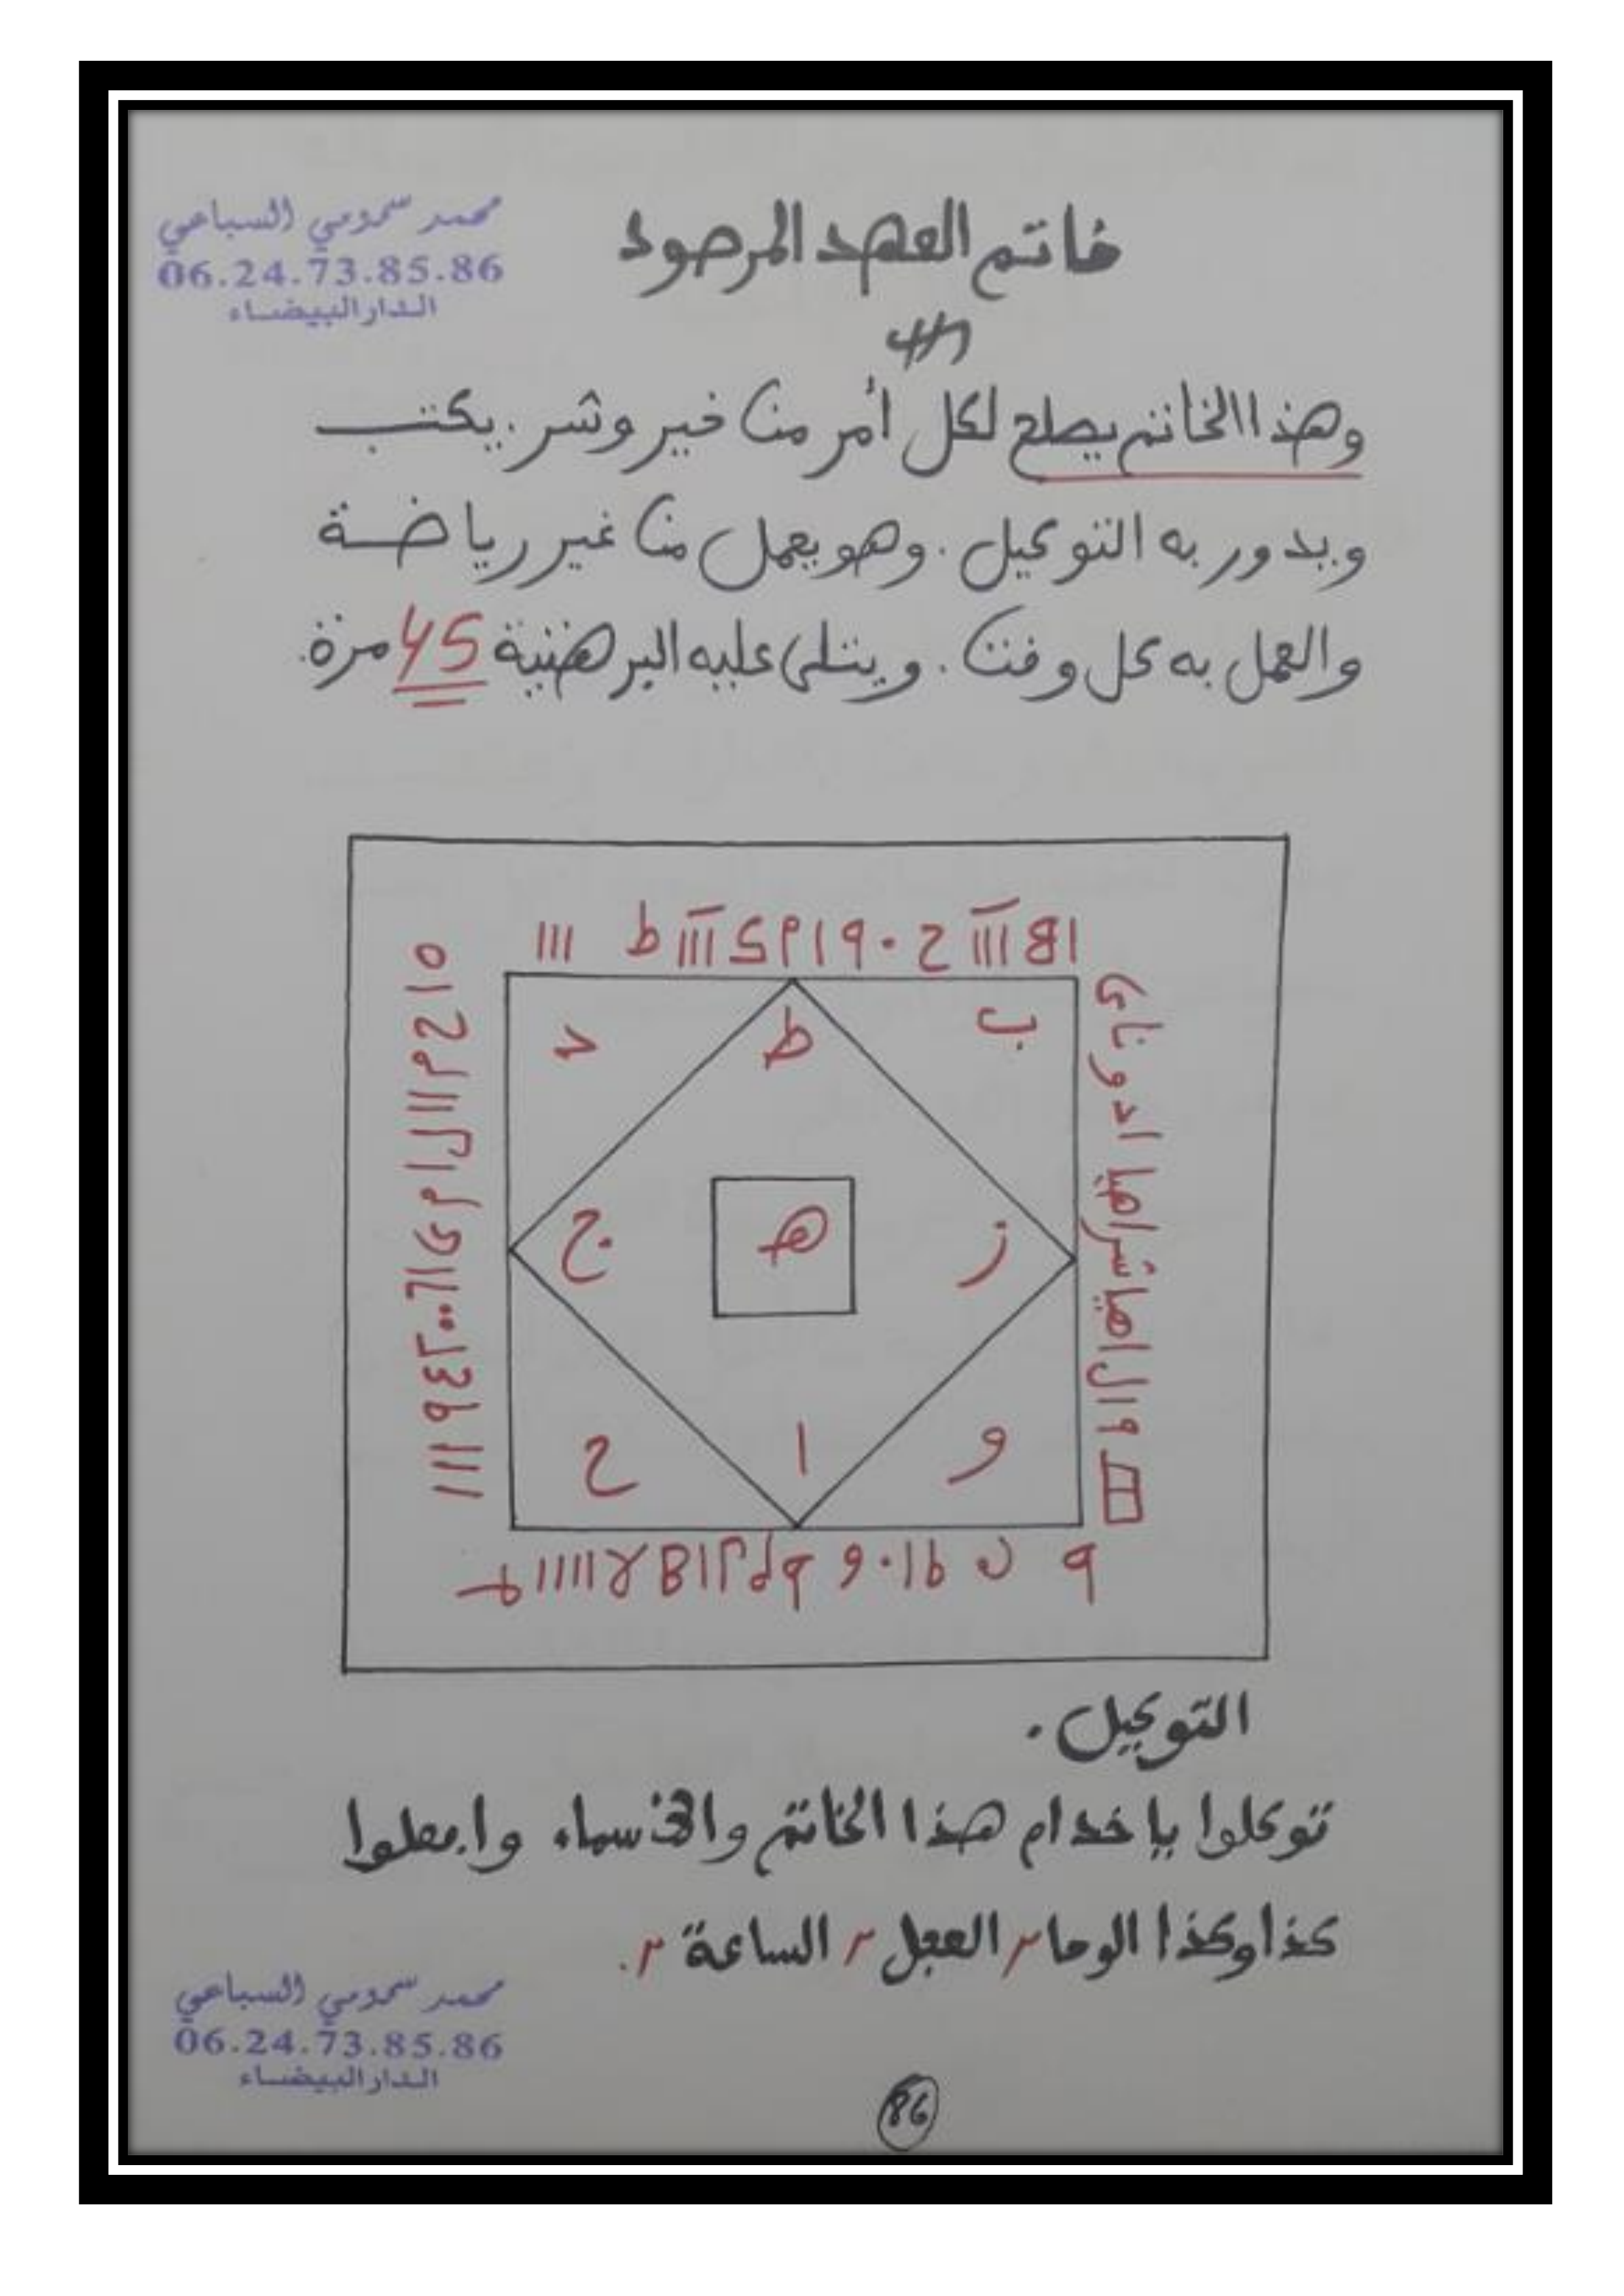 محمد سحمومي السباعي
06.24.73.85.86
الدار البيضاء
خاتم العهد المرصود
وهذا الخاتم يصلح لكل أمر من خير وشر. يكتب
ويدور به التوكيل. وهو يعمل من غير رياضة
والعمل به كل وقت. ويتلى عليه البرهتية 45 مرة.
د ط ب
ج هـ ز
ح ا و
اهيا شراهيا ادوناى
التوكيل.
توكلوا يا خدام هذا الخاتم والأسماء وافعلوا
كذا وكذا الوحا ٢ العجل ٢ الساعة ٢.
محمد سحمومي السباعي
06.24.73.85.86
الدار البيضاء
86